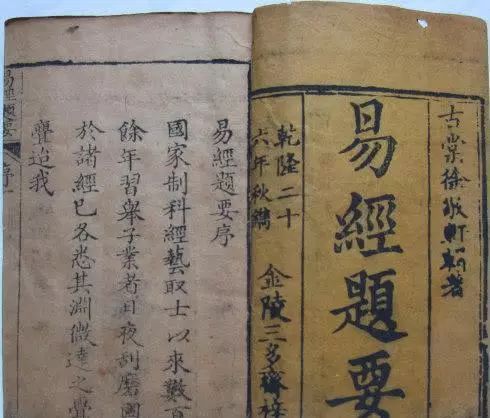 古棠徐軒著
易經題要
乾隆二十
六年秋鐫
金陵三多齋梓
易經題要序
國家制科經藝取士以來數百
餘年習舉子業者日夜刮磨國
於諸經已各悉其淵微達之
聾迨我
易經題要 序一